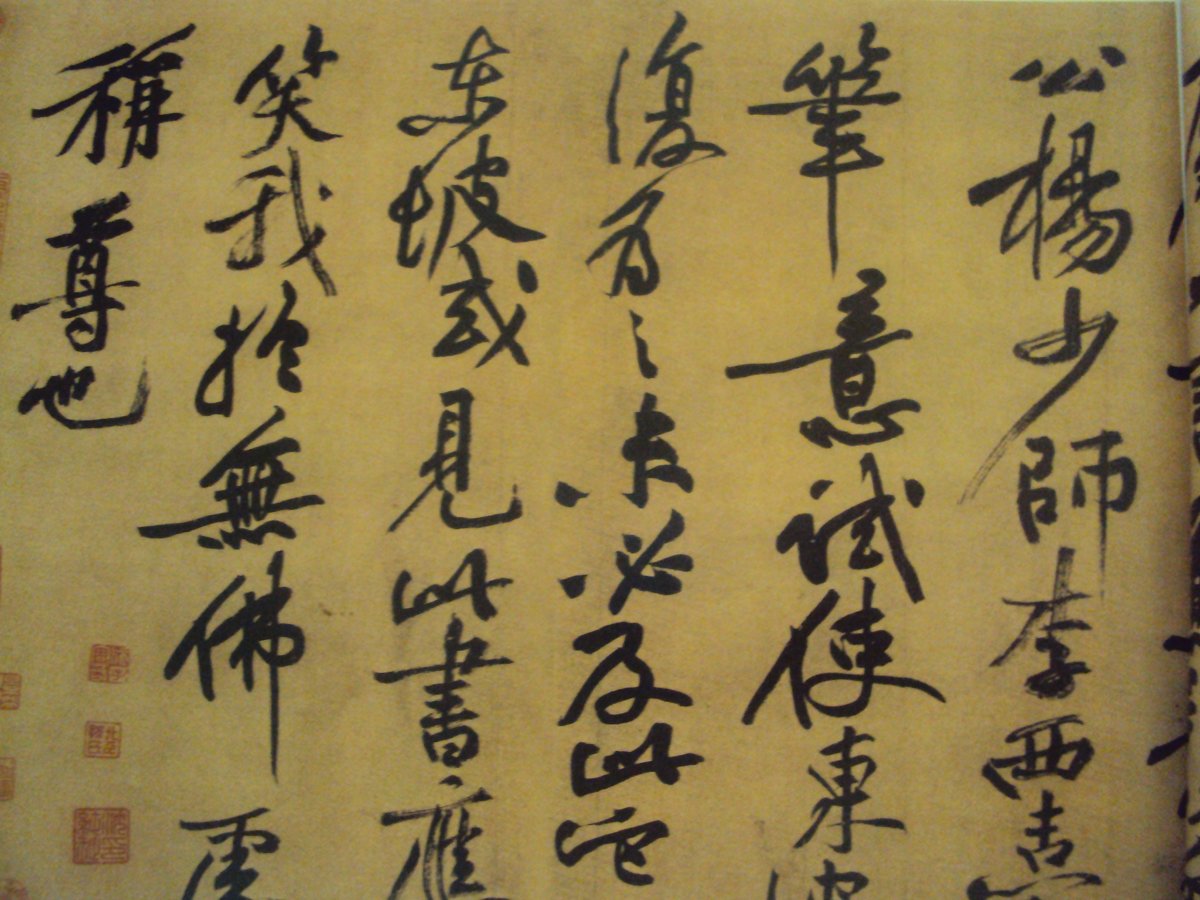 公楊少師李西臺
筆意試使東坡
復為之未必及此它
東坡或見此書應
笑我於無佛處
稱尊也